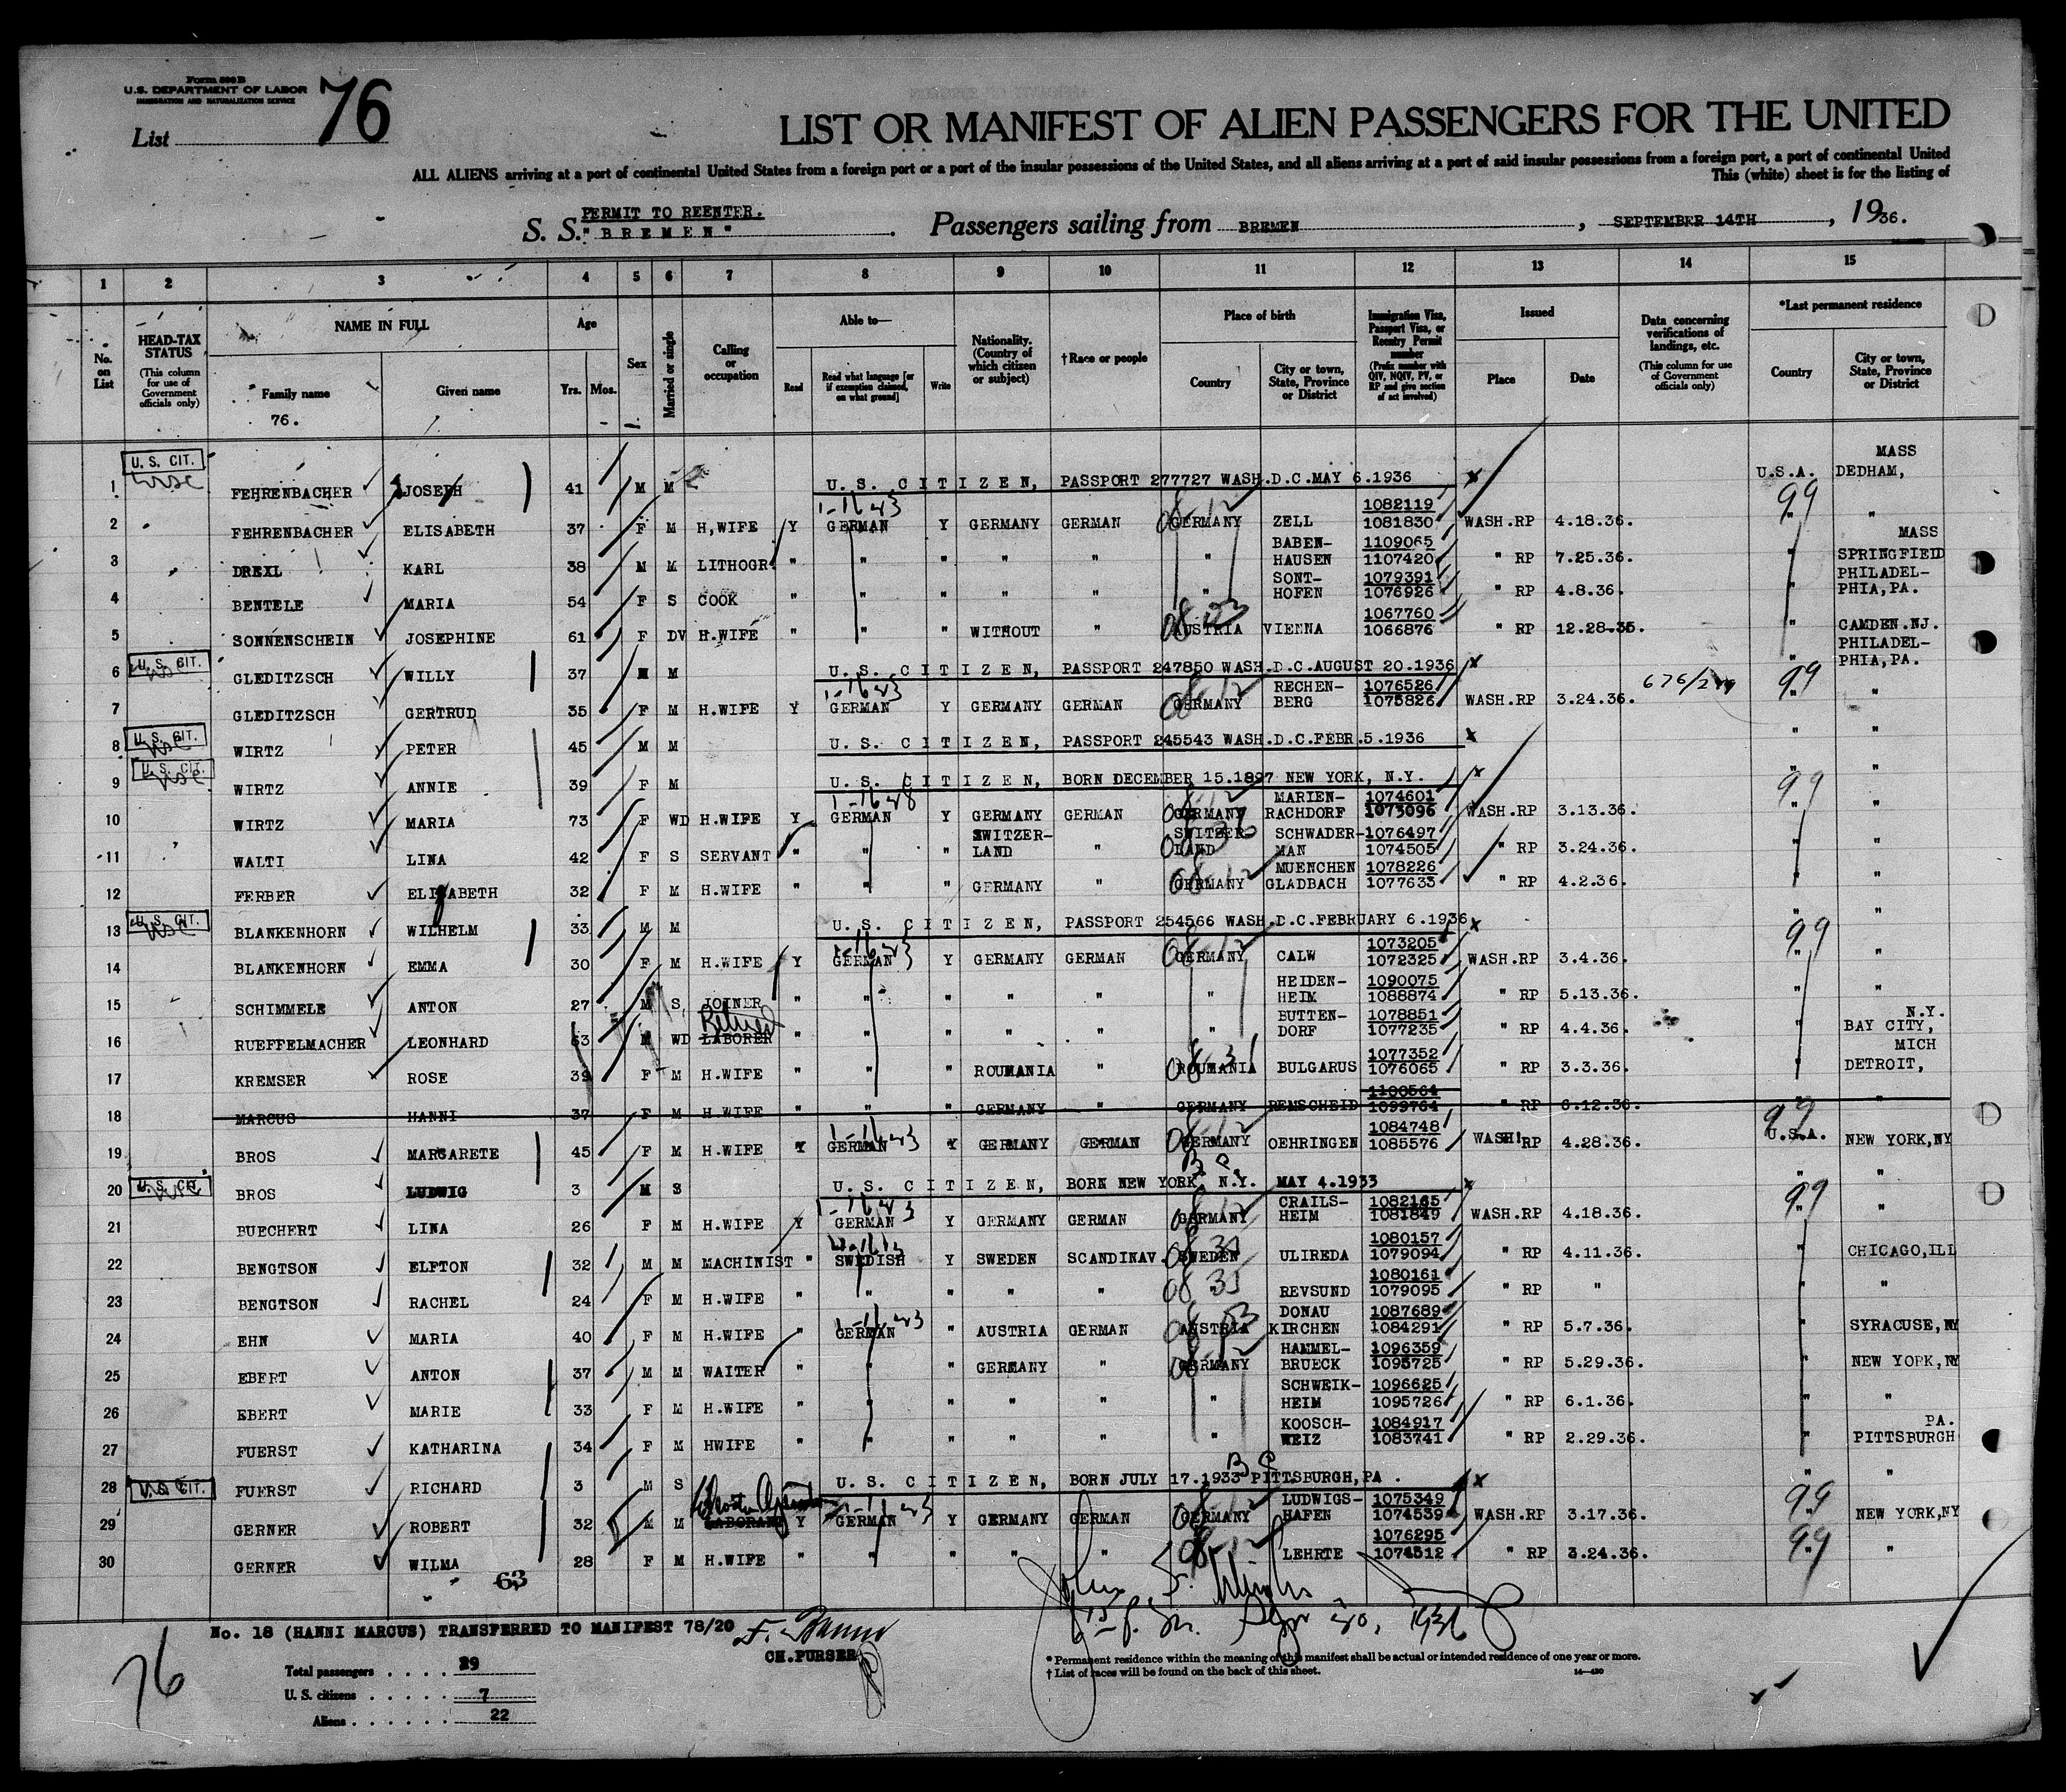 Form 500 B
U.S. DEPARTMENT OF LABOR
IMMIGRATION AND NATURALIZATION SERVICE
List 76
LIST OR MANIFEST OF ALIEN PASSENGERS FOR THE UNITED
ALL ALIENS arriving at a port of continental United States from a foreign port or a port of the insular possessions of the United States, and all aliens arriving at a port of said insular possessions from a foreign port, a port of continental United
This (white) sheet is for the listing of
PERMIT TO REENTER.
S. S. "BREMEN" . Passengers sailing from BREMEN , SEPTEMBER 14TH , 1936.
1 2 3 4 5 6 7 8 9 10 11 12 13 14 15
No. on List
HEAD-TAX STATUS (This column for use of Government officials only)
NAME IN FULL Family name Given name
76.
Age Yrs. Mos.
Sex
Married or single
Calling or occupation
Able to— Read Read what language [or if exemption claimed, on what ground] Write
Nationality. (Country of which citizen or subject)
†Race or people
Place of birth Country City or town, State, Province or District
Immigration Visa, Passport Visa, or Reentry Permit number (Prefix number with QIV, NQIV, PV, or RP and give section of act involved)
Issued Place Date
Data concerning verifications of landings, etc. (This column for use of Government officials only)
*Last permanent residence Country City or town, State, Province or District
1 U. S. CIT. FEHRENBACHER JOSEPH 41 M M U. S. CITIZEN, PASSPORT 277727 WASH.D.C.MAY 6.1936 x U.S.A. MASS DEDHAM,
2 FEHRENBACHER ELISABETH 37 F M H,WIFE Y GERMAN Y GERMANY GERMAN GERMANY ZELL 1082119 1081830 WASH.RP 4.18.36. 99 " "
3 DREXL KARL 38 M M LITHOGR. " " " " " " BABEN-HAUSEN 1109065 1107420 " RP 7.25.36. " MASS SPRINGFIELD
4 BENTELE MARIA 54 F S COOK " " " " " " SONT-HOFEN 1079391 1076926 " RP 4.8.36. " PHILADEL-PHIA,PA.
5 SONNENSCHEIN JOSEPHINE 61 F DV H.WIFE " " WITHOUT " AUSTRIA VIENNA 1067760 1066876 " RP 12.28.35. " CAMDEN.NJ.
6 U. S. CIT. GLEDITZSCH WILLY 37 M M U. S. CITIZEN, PASSPORT 247850 WASH.D.C.AUGUST 20.1936 x " PHILADEL-PHIA,PA.
7 GLEDITZSCH GERTRUD 35 F M H.WIFE Y GERMAN Y GERMANY GERMAN GERMANY RECHEN-BERG 1076526 1075826 WASH.RP 3.24.36. 99 " "
8 U. S. CIT. WIRTZ PETER 45 M M U. S. CITIZEN, PASSPORT 245543 WASH.D.C.FEBR.5.1936 x " "
9 U. S. CIT. WIRTZ ANNIE 39 F M U. S. CITIZEN, BORN DECEMBER 15.1897 NEW YORK, N.Y. x " "
10 WIRTZ MARIA 73 F WD H.WIFE Y GERMAN Y GERMANY GERMAN GERMANY MARIEN-RACHDORF 1074601 1073096 WASH.RP 3.13.36. 99 " "
11 WALTI LINA 42 F S SERVANT " " " SWITZER-LAND " SWITZER LAND SCHWADER-MAN 1076497 1074505 " RP 3.24.36. " "
12 FERBER ELISABETH 32 F M H.WIFE " " " GERMANY " GERMANY MUENCHEN GLADBACH 1078226 1077633 " RP 4.2.36. " "
13 U. S. CIT. BLANKENHORN WILHELM 33 M M U. S. CITIZEN, PASSPORT 254566 WASH.D.C.FEBRUARY 6.1936 x " "
14 BLANKENHORN EMMA 30 F M H.WIFE Y GERMAN Y GERMANY GERMAN GERMANY CALW 1073205 1072325 WASH.RP 3.4.36. 99 " "
15 SCHIMMELE ANTON 27 M S JOINER " " " " " HEIDEN-HEIM 1090075 1088874 " RP 5.13.36. " "
16 RUEFFELMACHER LEONHARD 63 M WD LABORER Retired " " " " " BUTTEN-DORF 1078851 1077235 " RP 4.4.36. " N.Y. BAY CITY,
17 KREMSER ROSE 39 F M H.WIFE " " " ROUMANIA " ROUMANIA BULGARUS 1077352 1076065 " RP 3.3.36. " MICH DETROIT,
18 MARCUS HANNI 37 F M H.WIFE " " " GERMANY " GERMANY REMSCHEID 1100564 1099764 " RP 6.12.36. " "
19 BROS MARGARETE 45 F M H.WIFE Y GERMAN Y GERMANY GERMAN GERMANY OEHRINGEN 1084748 1085576 WASH.RP 4.28.36. 99 U.S.A. NEW YORK,NY
20 U. S. CIT. BROS LUDWIG 3 M S U. S. CITIZEN, BORN NEW YORK, N.Y. MAY 4.1933 x " "
21 BUECHERT LINA 26 F M H.WIFE Y GERMAN Y GERMANY GERMAN GERMANY CRAILS-HEIM 1082165 1081849 WASH.RP 4.18.36. 99 " "
22 BENGTSON ELFTON 32 M M MACHINIST " SWEDISH Y SWEDEN SCANDINAV. SWEDEN ULIREDA 1080157 1079094 " RP 4.11.36. " CHICAGO,ILL
23 BENGTSON RACHEL 24 F M H.WIFE " " " " " " REVSUND 1080161 1079095 " RP " " "
24 EHN MARIA 40 F M H.WIFE " GERMAN " AUSTRIA GERMAN AUSTRIA DONAU KIRCHEN 1087689 1084291 " RP 5.7.36. " SYRACUSE,NY
25 EBERT ANTON 37 M M WAITER " " " GERMANY " GERMANY HAMMEL-BRUECK 1096359 1095725 " RP 5.29.36. " NEW YORK,NY
26 EBERT MARIE 33 F M H.WIFE " " " " " " SCHWEIK-HEIM 1096625 1095726 " RP 6.1.36. " "
27 FUERST KATHARINA 34 F M HWIFE " " " " " " KOOSCH-WEIZ 1084917 1083741 " RP 2.29.36. " PA. PITTSBURGH
28 U. S. CIT. FUERST RICHARD 3 M S U. S. CITIZEN, BORN JULY 17.1933 PITTSBURGH,PA. x " "
29 GERNER ROBERT 32 M M LABORANT Y GERMAN Y GERMANY GERMAN GERMANY LUDWIGS-HAFEN 1075349 1074539 WASH.RP 3.17.36. 99 NEW YORK,NY
30 GERNER WILMA 28 F M H.WIFE " " " " " LEHRTE 1076295 1074512 " RP 3.24.36. 99 " "
63
No. 18 (HANNI MARCUS) TRANSFERRED TO MANIFEST 78/20
CH.PURSER
76
Total passengers . . . . 29
U. S. citizens . . . . . 7
Aliens . . . . . . 22
* Permanent residence within the meaning of this manifest shall be actual or intended residence of one year or more.
† List of races will be found on the back of this sheet.
14—430